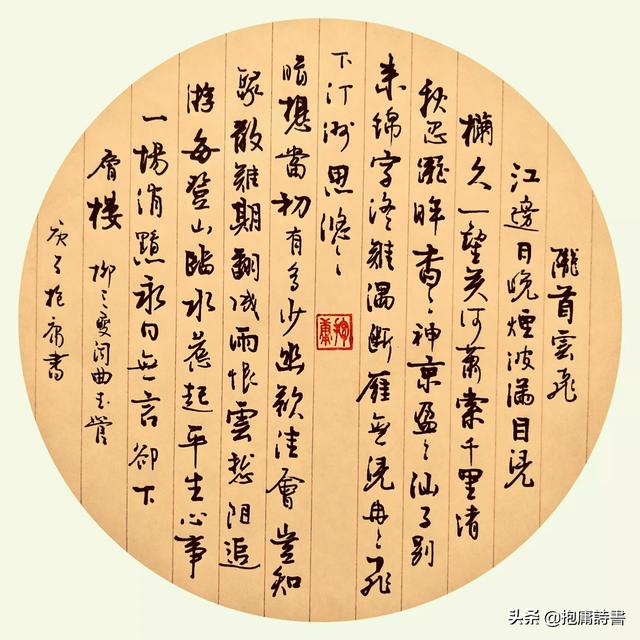 隴首雲飛
江邊日晚煙波滿目凭
欄久一望关河蕭索千里清
秋忍凝眸杳々神京盈々仙子别
来錦字终難偶断雁無凭冉々飛
下汀洲思悠々
暗想當初有多少幽歡佳會豈知
聚散難期翻成雨恨雲愁阻追
游每登山臨水惹起平生心事
一場消黯永日無言卻下
層楼 柳三變词曲玉管
庚子抱庸書
抱庸
头条 @抱庸詩書